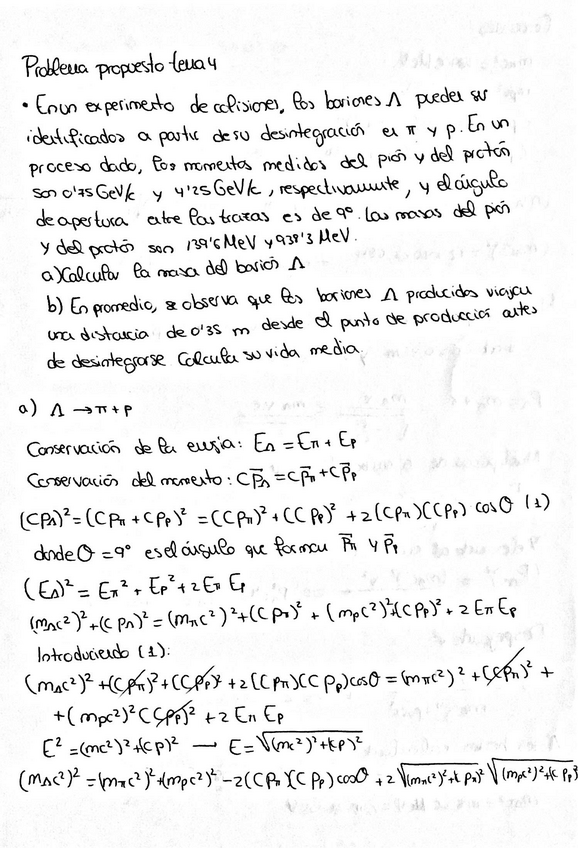 Problema propuesto tema 4
• En un experimento de colisiones, los bariones Λ pueden ser
identificados a partir de su desintegración en π y p. En un
proceso dado, los momentos medidos del pión y del protón
son 0'75 GeV/c y 4'25 GeV/c, respectivamente, y el ángulo
de apertura entre las trazas es de 9º. Las masas del pión
y del protón son 139'6 MeV y 938'3 MeV.
a) Calcular la masa del barión Λ
b) En promedio, se observa que los bariones Λ producidos viajan
una distancia de 0'35 m desde el punto de producción antes
de desintegrarse. Calcula su vida media.
a) Λ → π + p
Conservación de la energía: E_Λ = E_π + E_p
Conservación del momento: c p⃗_Λ = c p⃗_π + c p⃗_p
(c p_Λ)² = (c p_π + c p_p)² = (c p_π)² + (c p_p)² + 2 (c p_π)(c p_p) cos θ (1)
donde θ = 9º es el ángulo que forman p⃗_π y p⃗_p
(E_Λ)² = E_π² + E_p² + 2 E_π E_p
(m_Λc²)² + (c p_Λ)² = (m_πc²)² + (c p_π)² + (m_pc²)² + (c p_p)² + 2 E_π E_p
Introduciendo (1):
(m_Λc²)² + (c p_π)² + (c p_p)² + 2 (c p_π)(c p_p) cos θ = (m_πc²)² + (c p_π)² +
+ (m_pc²)² (c p_p)² + 2 E_π E_p
E² = (mc²)² + (c p)² → E = √((mc²)² + (c p)²)
(m_Λc²)² = (m_πc²)² + (m_pc²)² - 2 (c p_π)(c p_p) cos θ + 2 √((m_πc²)² + (c p_π)²) √((m_pc²)² + (c p_p)²)